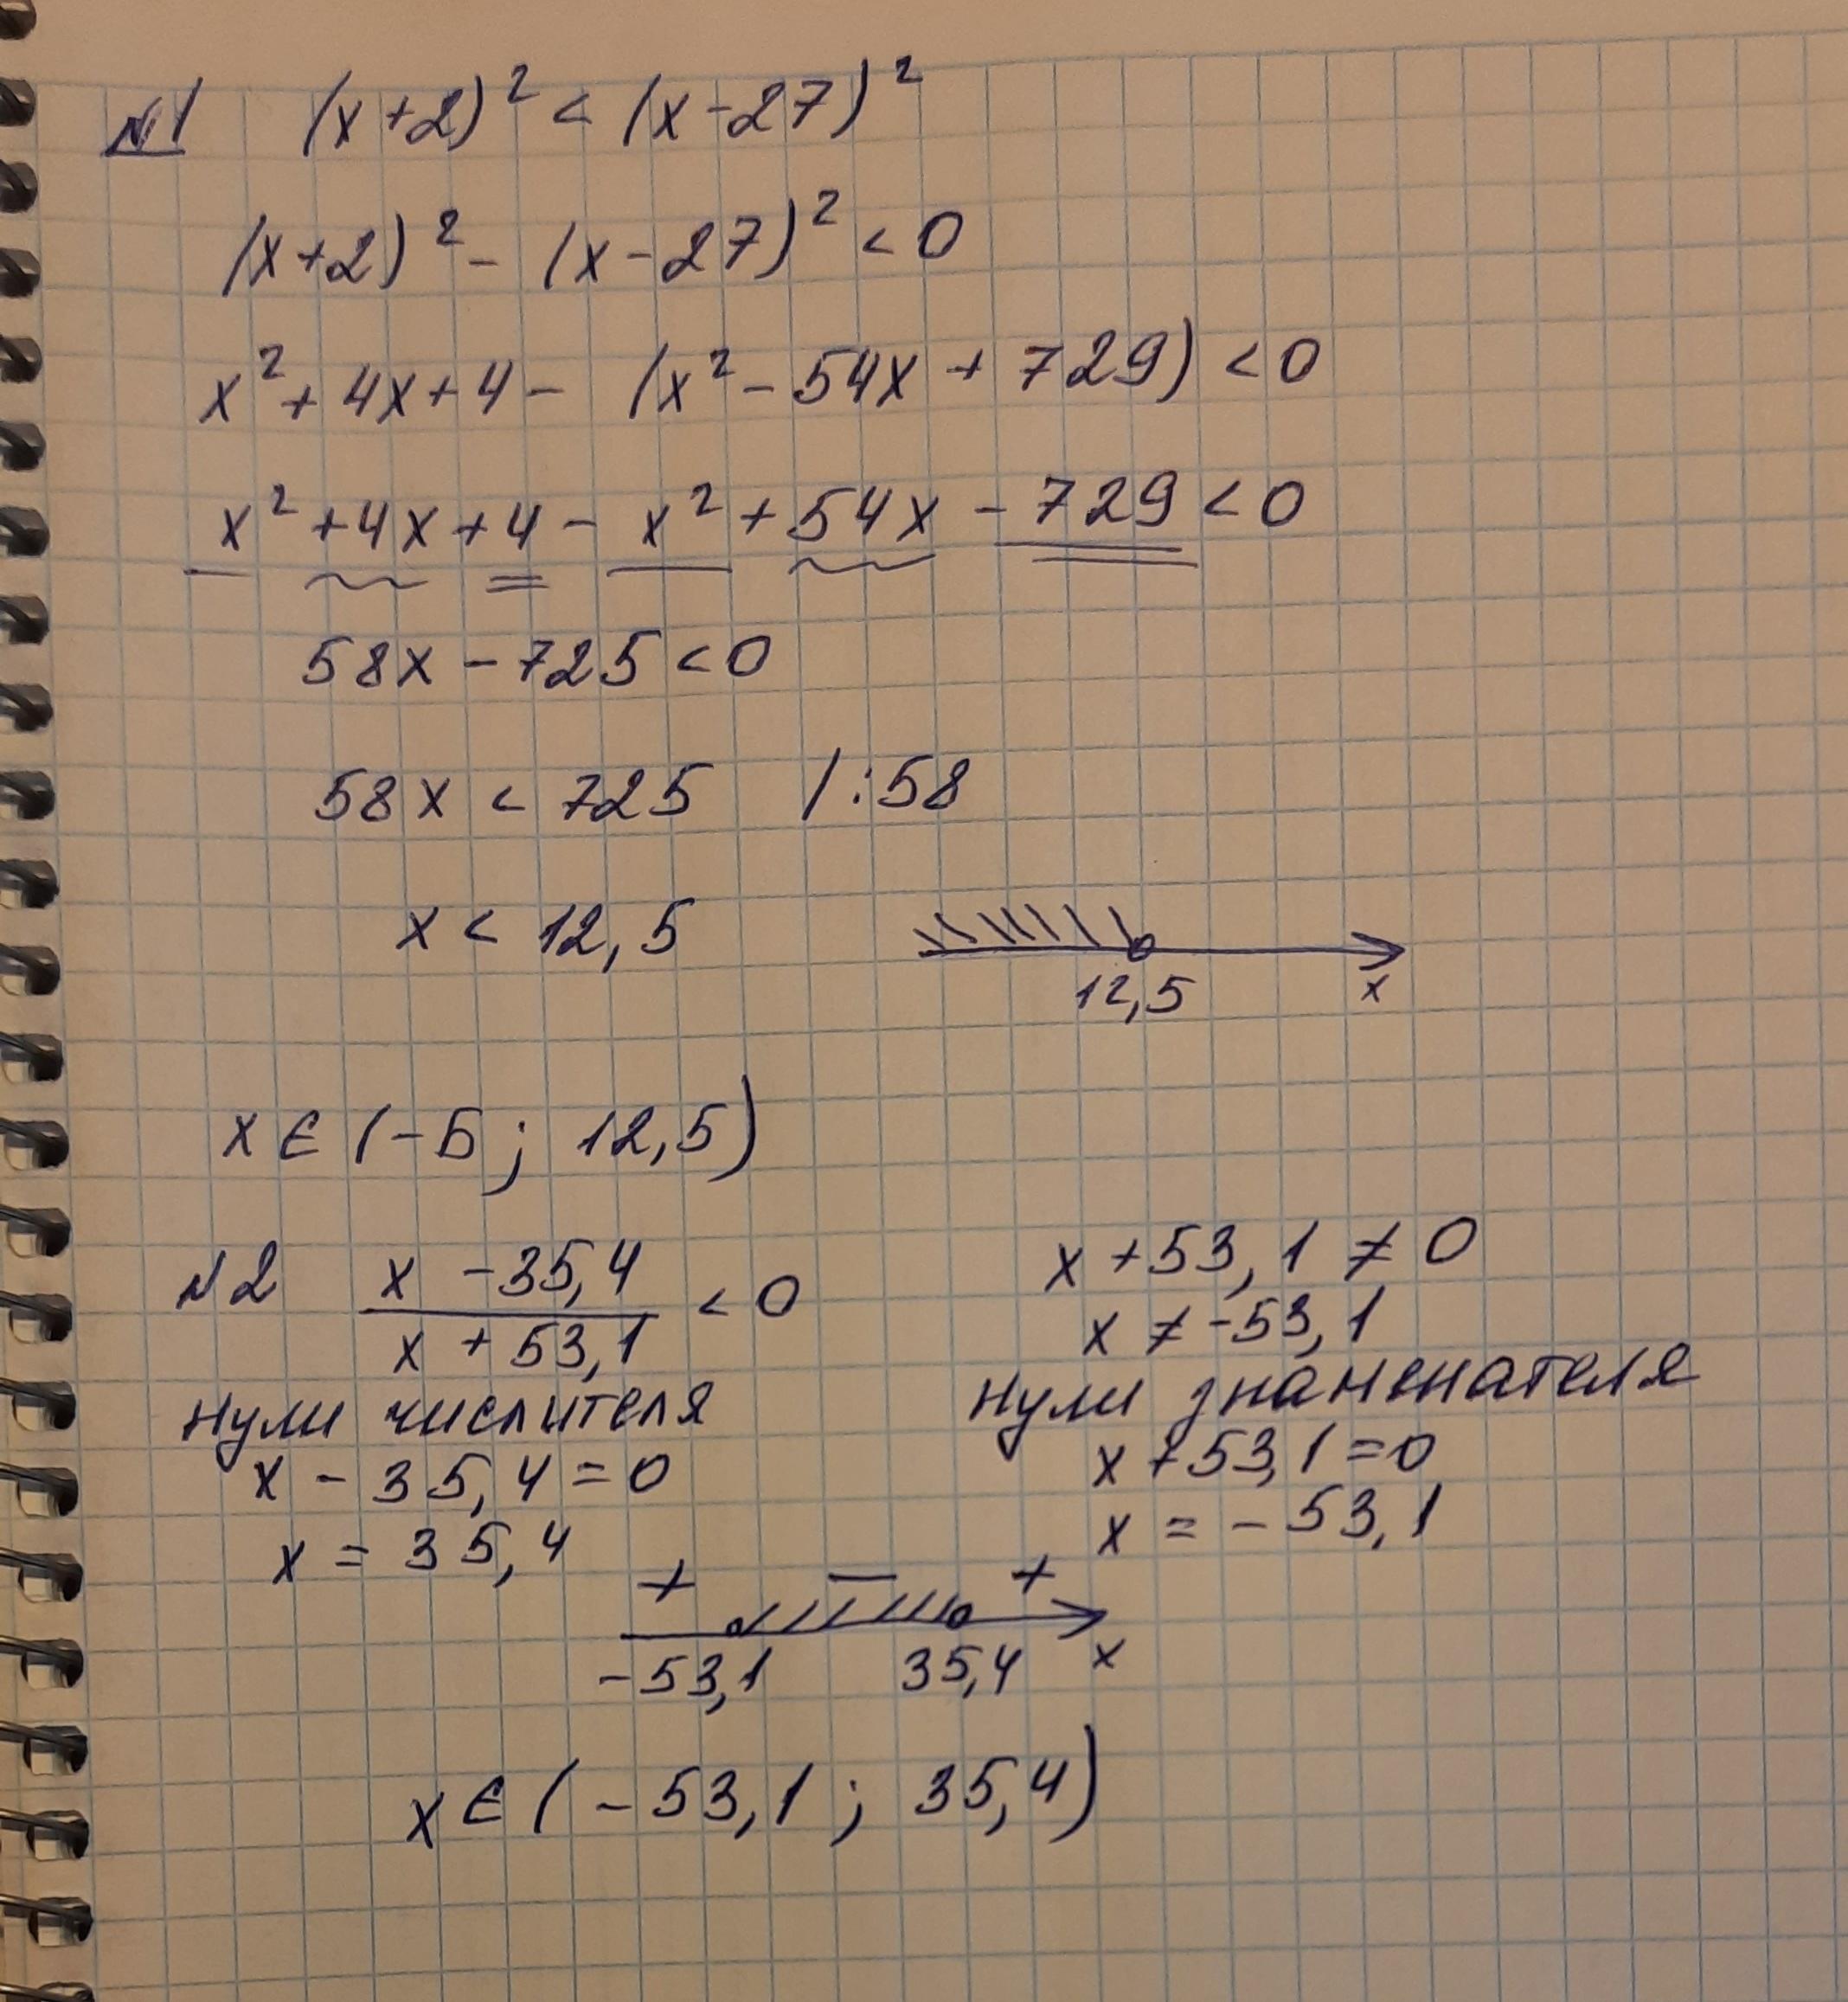 №1 (x+2)² < (x-27)²
(x+2)² - (x-27)² < 0
x² + 4x + 4 - (x² - 54x + 729) < 0
x² + 4x + 4 - x² + 54x - 729 < 0
58x - 725 < 0
58x < 725 /:58
x < 12,5
12,5 x
x ∈ (-Б; 12,5)
№2 (x - 35,4)/(x + 53,1) < 0
x + 53,1 ≠ 0
x ≠ -53,1
Нули числителя
x - 35,4 = 0
x = 35,4
Нули знаменателя
x + 53,1 = 0
x = -53,1
+ - +
-53,1 35,4 x
x ∈ (-53,1; 35,4)